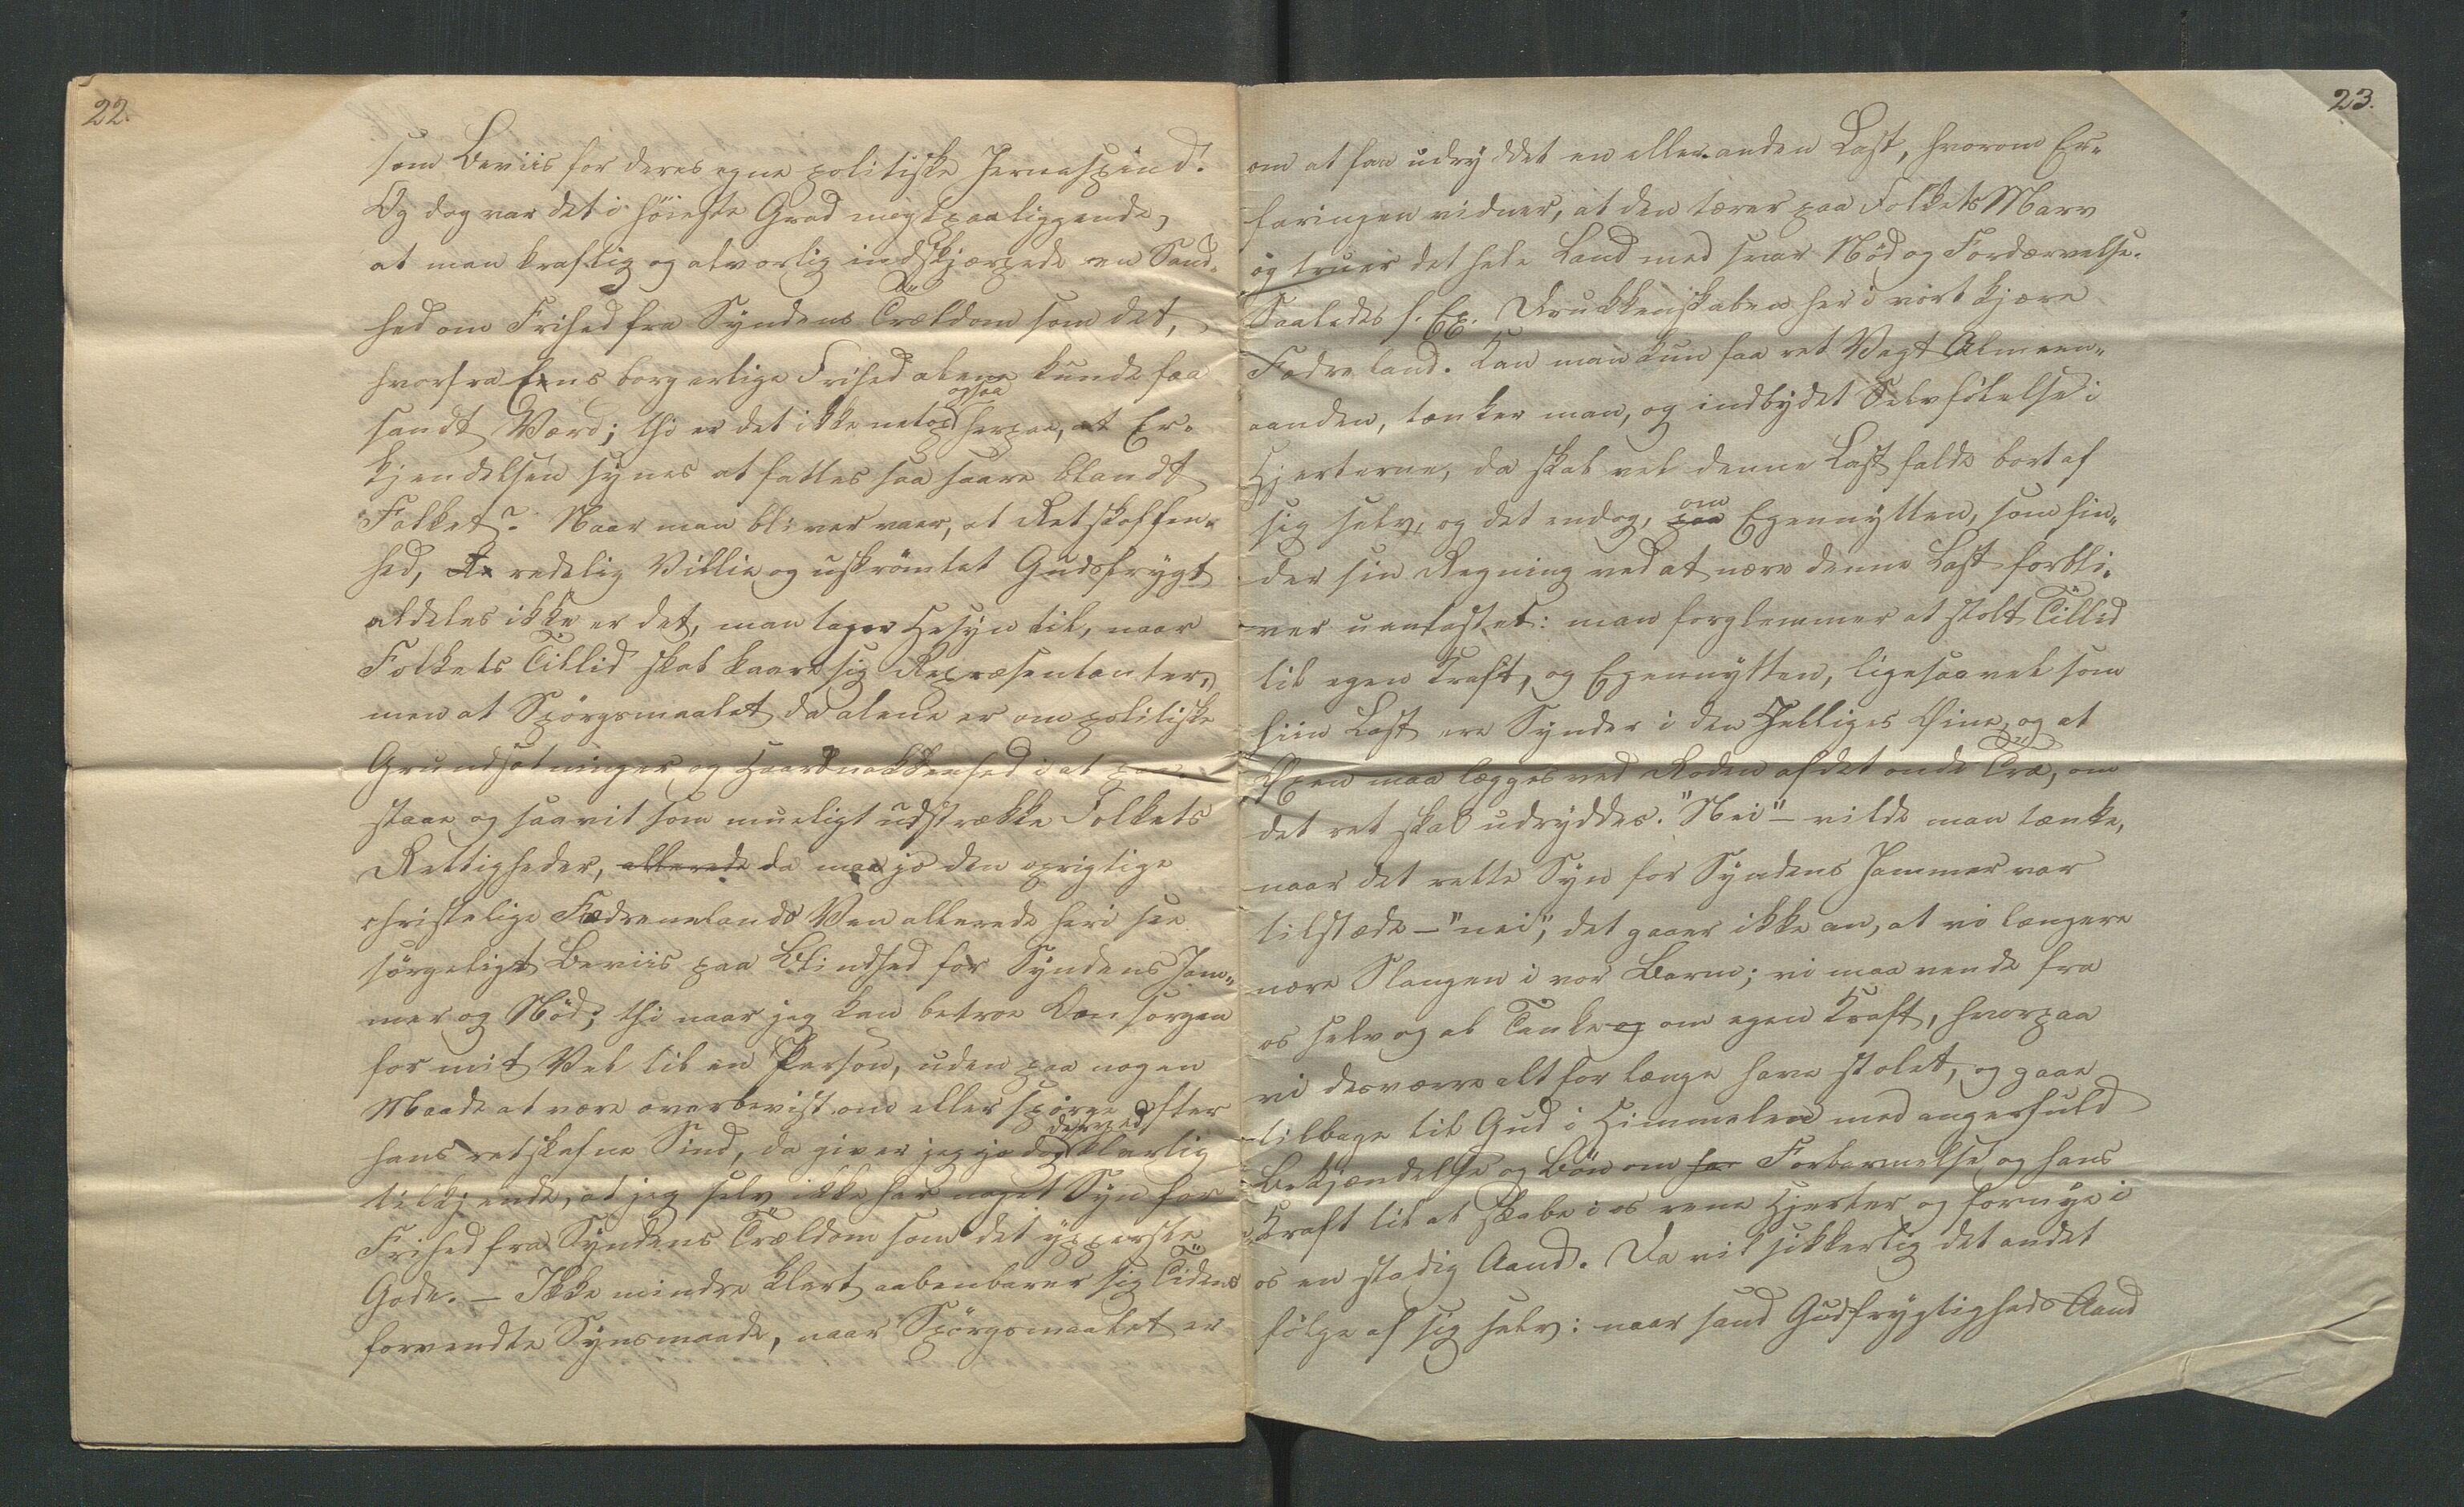 22.
som Beviis for deres egne politiske Hernespind.
Og dog var det i høieste Grad magtpaaliggende,
at man kraftig og alvorlig indskjærpede en Sand-
hed om Frihed fra Syndens Trældom som det,
hvorfra Ens borgerlige Frihed alene kunde faa
sandt Værd; thi er det ikke netop ogsaa herpaa, at Er-
kjendelsen synes at fattes saa saare blandt
Folket? Naar man bliver vaer, at Retskaffen-
hed, redelig Villie og uskrømtet Gudsfrygt
aldeles ikke er det, man tager Hesyn til, naar
Folkets Tillid skal kaare sig Repræsentanter,
men at Spørgsmaalet da alene er om politiske
Grundsætninger og Haardnakkenhed i at paa-
staae og saavit som mueligt udstrække Folkets
Rettigheder, allerede da maa jo den oprigtige
christelige Fædrenelands Ven allerede heri see
sørgeligt Beviis paa Blindhed for Syndens Jam-
mer og Nød; thi naar jeg kan betroe Omsorgen
for mit Vel til en Person, uden paa nogen
Maade at være overbevist om eller spørge efter
hans retskafne Sind, da giver jeg jo dog derved klarlig
tilkjende, at jeg selv ikke har noget Syn for
Frihed fra Syndens Trældom som det ypperste
Gode. — Ikke mindre klart aabenbarer sig Tidens
forvendte Synsmaade, naar Spørgsmaalet er
23.
om at faa udryddet en eller anden Last, hvorom Er-
faringen vidner, at den tærer paa Folkets Marv
og truer det hele Land med svar Nød og Fordærvelse.
Saaledes f. Ex. Drukkenskaben her i vort kjære
Fædreland. Kan man kun faa ret Vagt Almeen-
aanden, tænker man, og indbydet Selvfølelse i
Hjerterne, da skal vel denne Last falde bort af
sig selv, og det endog, paa om Egennytten, som fin-
der sin Regning ved at nære denne Last forbli-
ver uantastet: man forglemmer at stolt Tillid
til egen Kraft, og Egennytten, ligesaavel som
hiin Last ere Synder i den Helliges Øine, og at
Øxen maa lægges ved Roden af det onde Træ, om
det ret skal udryddes. "Nei" — vilde man tænke,
naar det rette Syn for Syndens Jammer var
tilstæde — "nei", det gaaer ikke an, at vi længere
nære Slangen i vor Barm; vi maa vende fra
os selv og al Tanke og om egen Kraft, hvorpaa
vi desværre alt for længe have stolet, og gaae
tilbage til Gud i Himmelen med angerfuld
Bekjændelse og Bøn om for Forbarmelse og hans
Kraft til at skabe i os rene Hjerter og fornye i
os en stadig Aand. Da vil sikkerlig det andet
følge af sig selv: naar sand Gudfrygtigheds Aand